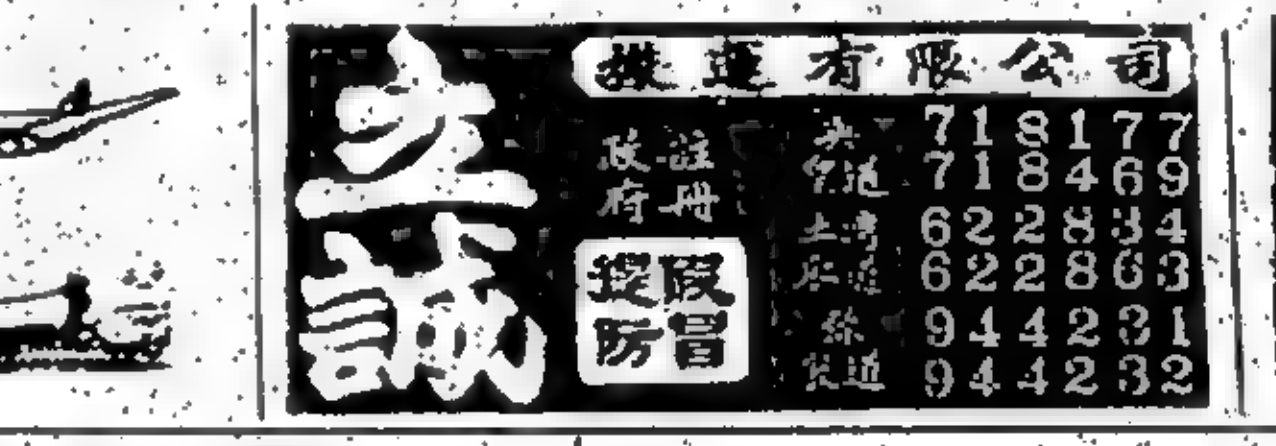 立誠
搬運有限公司
政府
註冊
提防
假冒
英皇道
718177
718469
土瓜灣道
622834
622863
道
944231
944232